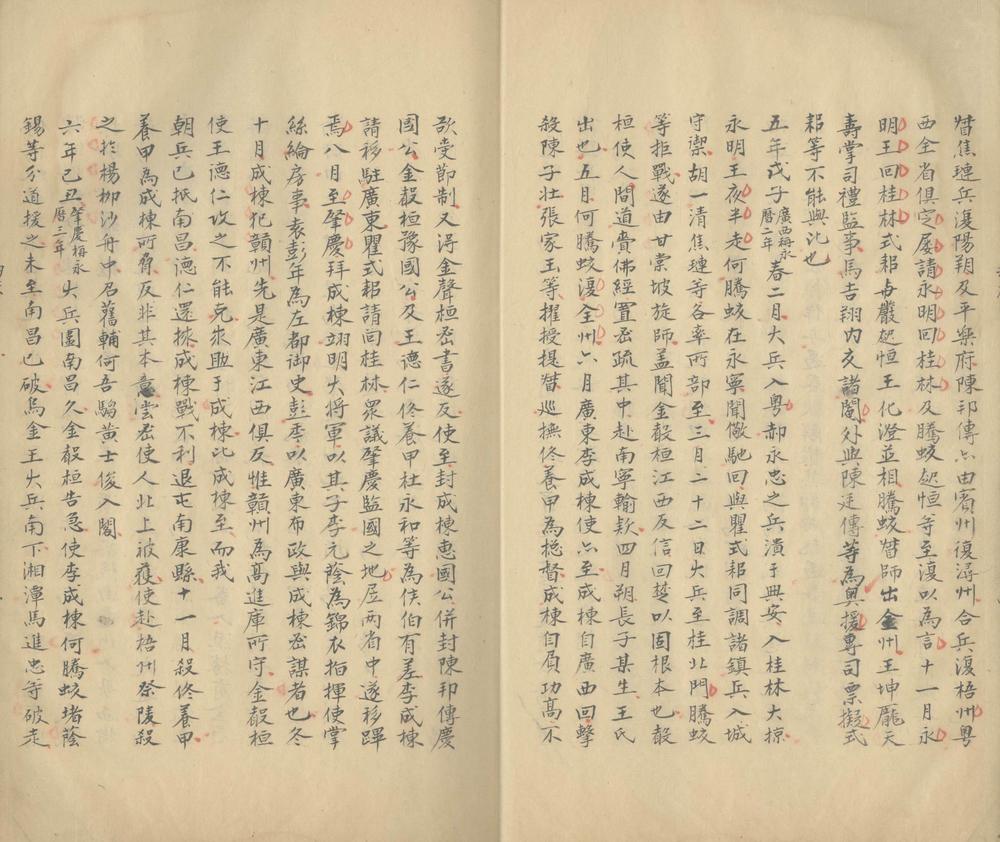 督焦璉兵復陽朔及平樂府陳邦傳亦由賓州復潯州合兵復梧州粵
西全省俱定屢請永明回桂林及騰蛟起恒等至復以為言十一月永
明王回桂林式耜與嚴起恒王化澄並相騰蛟督師出金州王坤龐天
壽掌司禮監事馬吉翔內交諸閹外與陳廷傳等為奧援專司票擬式
耜等不能與比也
五年戊子廣西梅永曆二年春二月大兵入粵郝永忠之兵潰于興安入桂林大掠
永明王夜半走何騰蛟在永寧聞儆馳回與瞿式耜同調諸鎮兵入城
守禦胡一清焦璉等各率所部至三月二十二日大兵至桂北門騰蛟
等拒戰遂由甘棠坡旋師蓋聞金殽桓江西反信回楚以固根本也殽
桓使人間道賫佛經置密疏其中赴南寧輸欵四月朔長子某生王氏
出也五月何騰蛟復全州六月廣東李成棟使亦至成棟自廣西回擊
殺陳子壯張家玉等擢授提督巡撫佟養甲為總督成棟自負功高不
欲受節制又得金聲桓密書遂反使至封成棟惠國公併封陳邦傳慶
國公金殽桓豫國公及王德仁佟養甲杜永和等為侯伯有差李成棟
請移駐廣東瞿式耜請回桂林眾議肇慶監國之地居兩省中遂移蹕
焉八月至肇慶拜成棟翊明大將軍以其子李元蔭為錦衣指揮使掌
絲綸房事袁彭年為左都御史彭季以廣東布政與成棟密謀者也冬
十月成棟犯贛州先是廣東江西俱反惟贛州為高進庫所守金殽桓
使王德仁攻之不能克來助于成棟比成棟至而我
朝兵已抵南昌德仁還捄成棟戰不利退屯南康縣十一月殺佟養甲
養甲為成棟所脅反非其本意嘗密使人北上被獲使赴梧州祭陵殺
之於楊柳沙舟中召舊輔何吾騶黃士俊入閣
六年己丑肇慶梅永曆三年大兵圍南昌久金殽桓告急使李成棟何騰蛟堵蔭
錫等分道援之未至南昌已破烏金王大兵南下湘潭馬進忠等破走